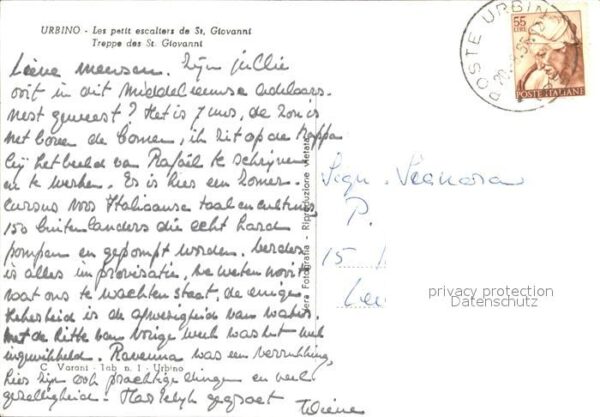 URBINO - Les petit escaliers de St. Giovanni
Treppe des St. Giovanni
POSTE URBINO
55
LIRE
POSTE ITALIANE
Lieve mensen. Zijn jullie
ooit in dit middeleeuwse adelaars-
nest geweest? Het is 7 uur, de zon is
net boven de bomen, ik zit op de trappen
bij het beeld van Rafaël te schrijven
en te werken. Er is hier een zomer-
cursus voor Italiaanse taal en cultuur,
150 buitenlanders die echt hard
pompen en gepompt worden. Verder
is alles improvisatie, we weten nooit
wat ons te wachten staat, de enige
zekerheid is de afwezigheid van water.
Met de hitte van vorige week was het wel
ingewikkeld. Ravenna was een verrukking,
hier zijn ook prachtige dingen en veel
gezelligheid. Hartelijk gegroet
C. Varani - Tab. n. 1 - Urbino
Vera Fotografia - Riproduzione vietata
Sign. Signora
P.
15
privacy protection
Datenschutz